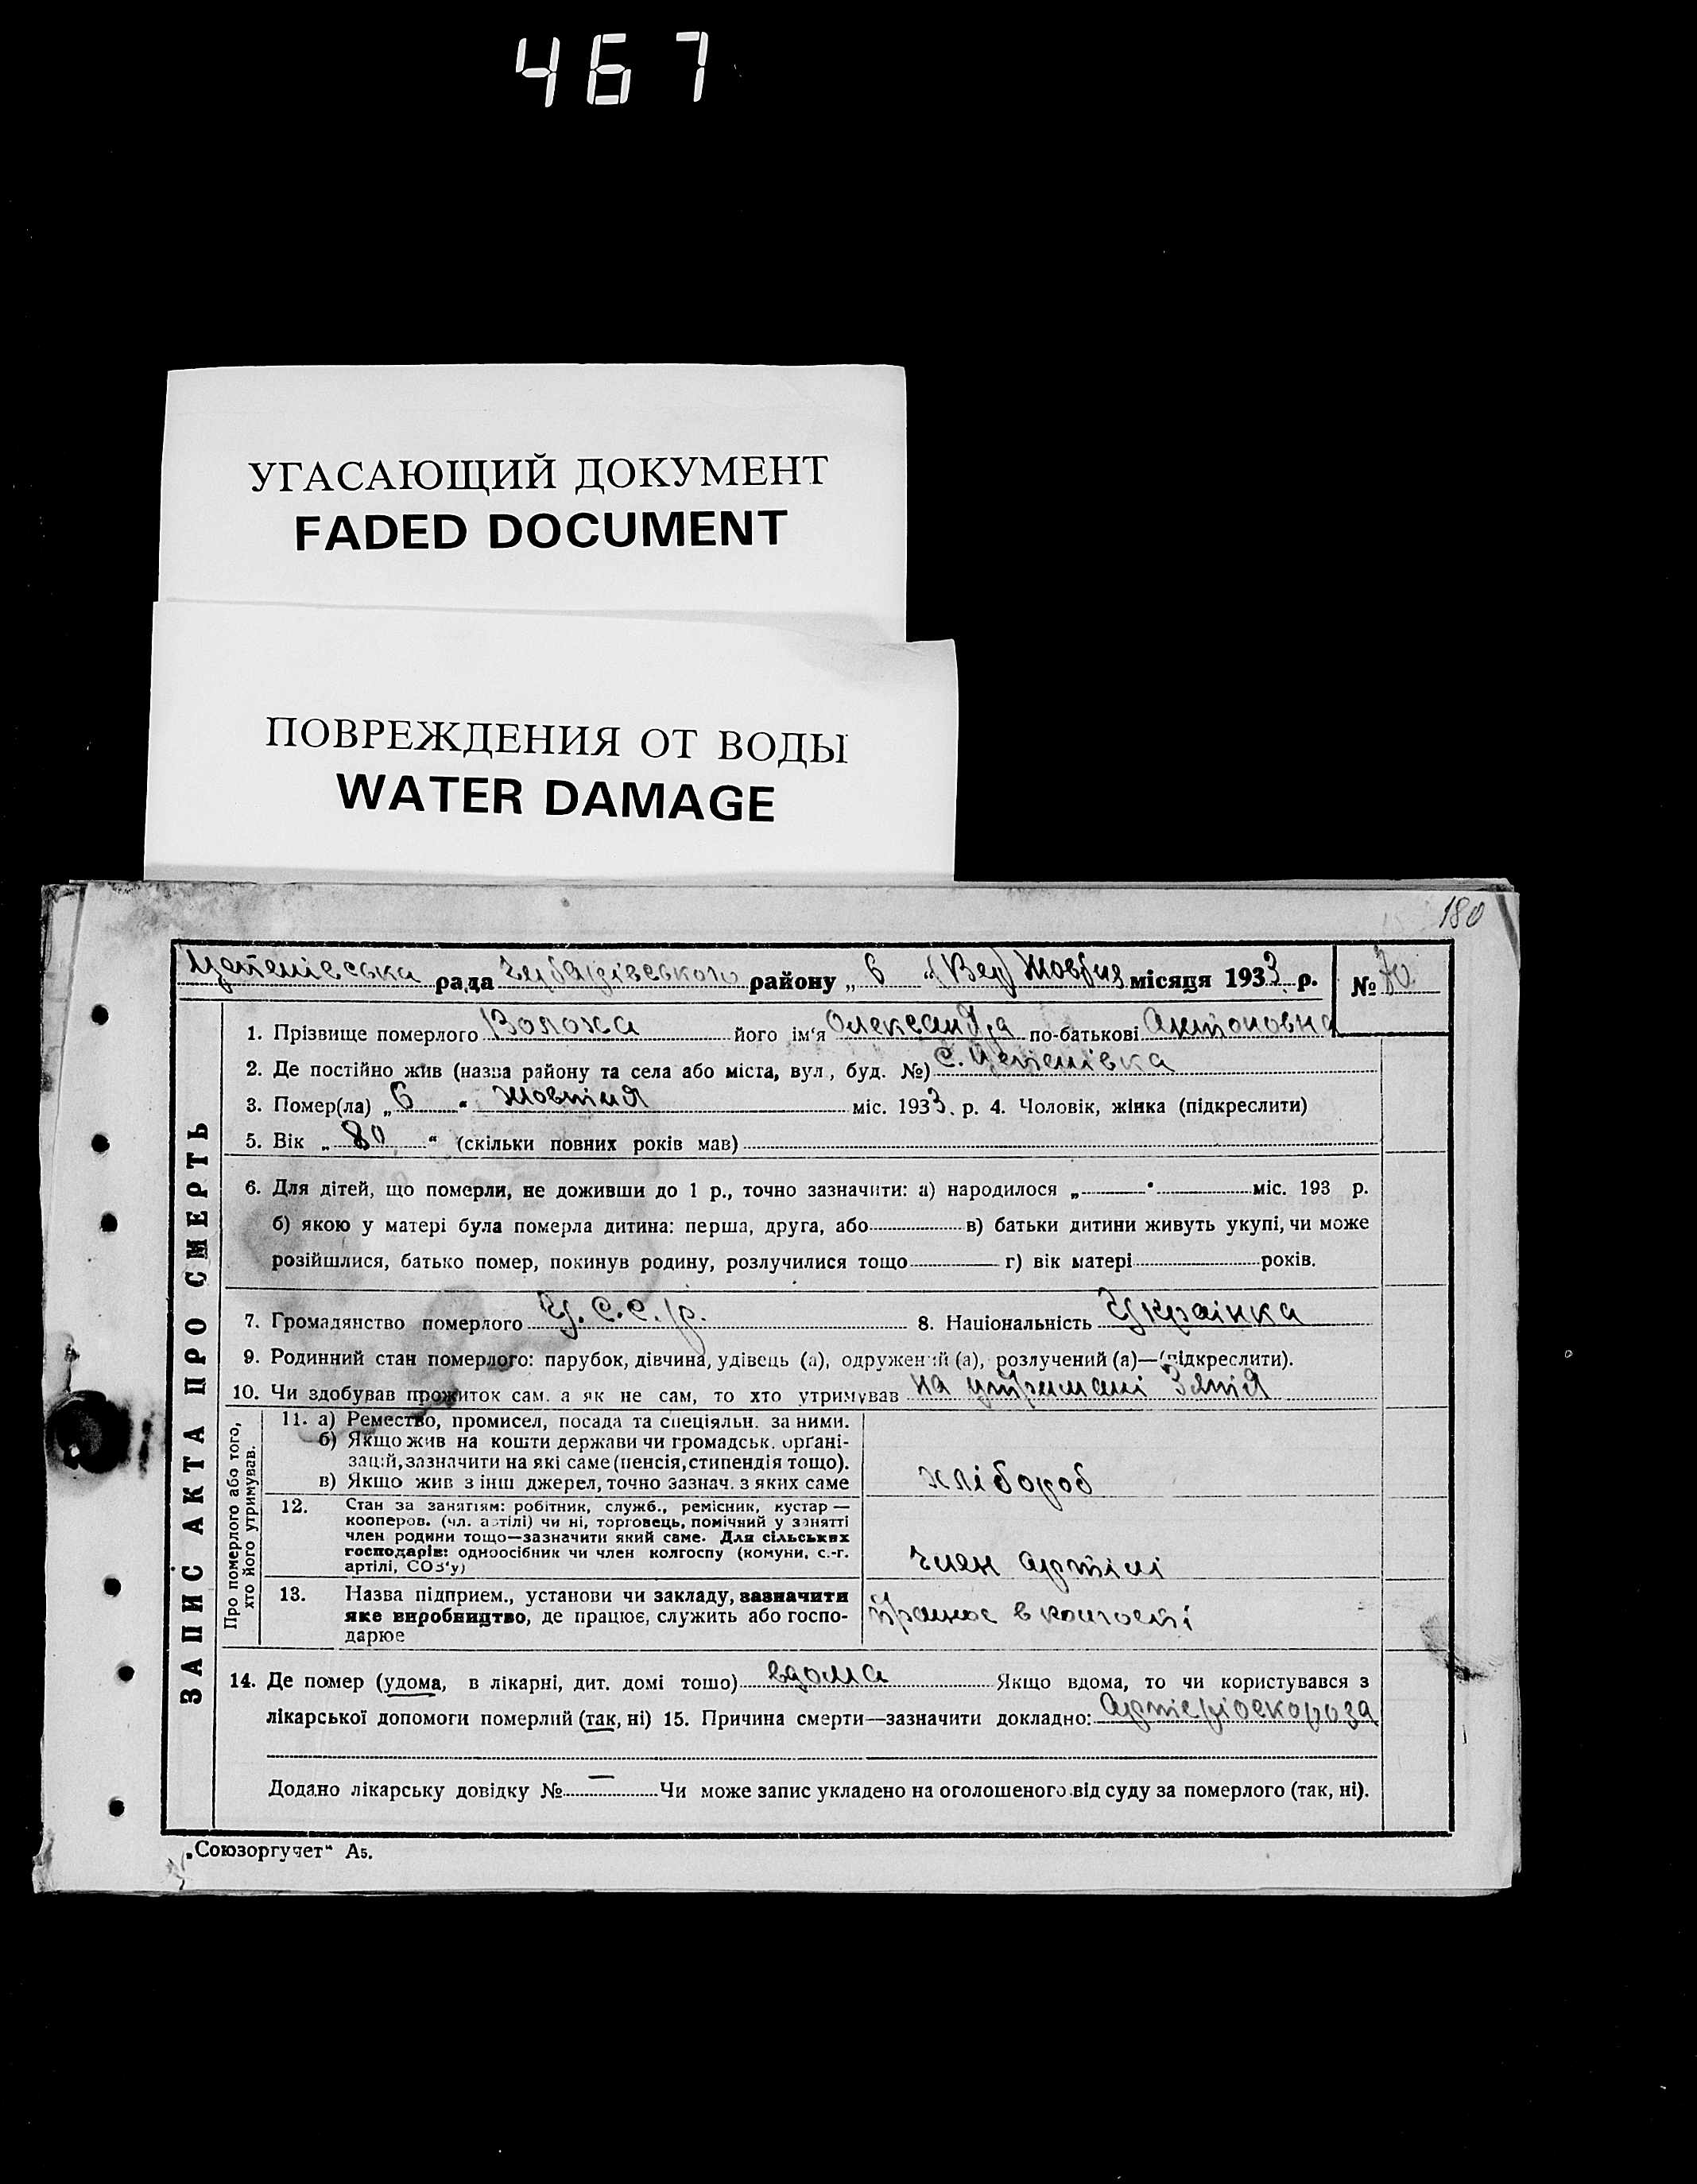 467
УГАСАЮЩИЙ ДОКУМЕНТ
FADED DOCUMENT
ПОВРЕЖДЕНИЯ ОТ ВОДЫ
WATER DAMAGE
180
рада району „ 6 “ (Вер) Жовтня місяця 1933 р. № 70
ЗАПИС АКТА ПРО СМЕРТЬ
1. Прізвище померлого Волоха його ім'я Олександра по-батькові Антоновна
2. Де постійно жив (назва району та села або міста, вул., буд. №) с.
3. Помер(ла) „ 6 “ Жовтня міс. 1933. р. 4. Чоловік, жінка (підкреслити)
5. Вік „ 80 “ (скільки повних років мав)
6. Для дітей, що померли, не доживши до 1 р., точно зазначити: а) народилося „ “ міс. 193 р.
б) якою у матері була померла дитина: перша, друга, або в) батьки дитини живуть укупі, чи може
розійшлися, батько помер, покинув родину, розлучилися тощо г) вік матері років.
7. Громадянство померлого У.С.С.р. 8. Національність Українка
9. Родинний стан померлого: парубок, дівчина, удівець (а), одружений (а), розлучений (а)—(підкреслити).
10. Чи здобував прожиток сам. а як не сам, то хто утримував на утримані Зятя
Про померлого або того,
хто його утримував.
11. а) Ремество, промисел, посада та спеціяльн. за ними.
б) Якщо жив на кошти держави чи громадськ. орґані-
зацій, зазначити на які саме (пенсія, стипендія тощо).
в) Якщо жив з інш джерел, точно зазнач. з яких саме
хлібороб
12. Стан за заняттям: робітник, служб., ремісник, кустар —
кооперов. (чл. артілі) чи ні, торговець, помічний у занятті
член родини тощо—зазначити який саме. Для сільських
господарів: одноосібник чи член колгоспу (комуни, с.-г.
артілі, СОЗ'у)
член артілі
13. Назва підприєм., установи чи закладу, зазначити
яке виробництво, де працює, служить або госпо-
дарює
в
14. Де помер (удома, в лікарні, дит. домі тошо) вдома Якщо вдома, то чи користувався з
лікарської допомоги померлий (так, ні) 15. Причина смерти—зазначити докладно: Артеріоскороза
Додано лікарську довідку № — Чи може запис укладено на оголошеного від суду за померлого (так, ні).
„Союзоргучет“ А5.